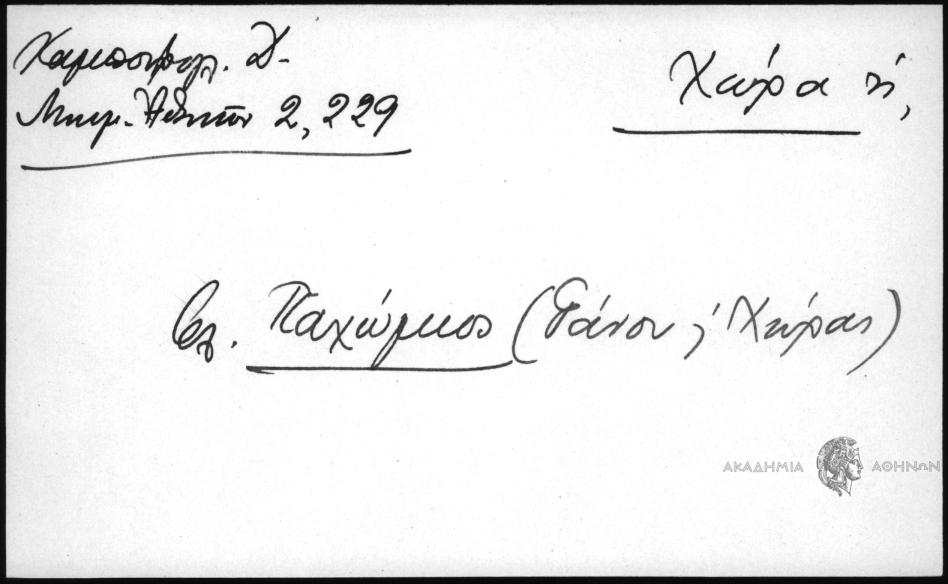 Καμπούρογλ. Δ.
Μνημ. Ἀθηνῶν 2, 229
Χώρα ἡ,
βλ. Παχώμιος (Τάνου ἡ Χώρας)
ΑΚΑΔΗΜΙΑ ΑΘΗΝΩΝ